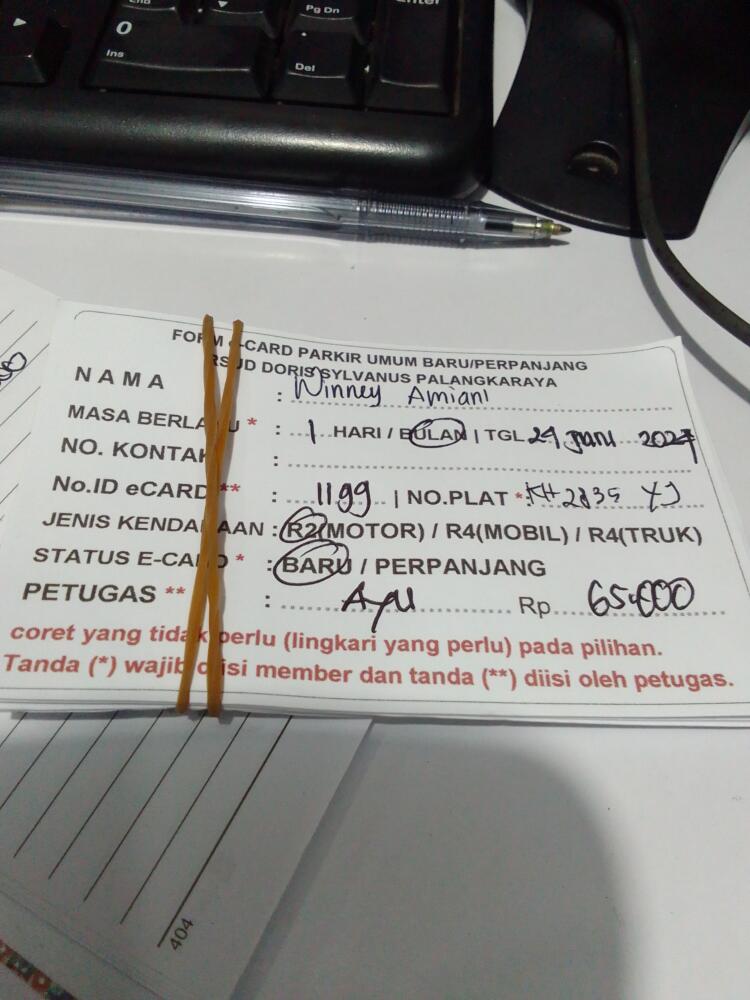 End
Pg Dn
Enter
0
Ins
.
Del
FORM e-CARD PARKIR UMUM BARU/PERPANJANG
RSUD DORIS SYLVANUS PALANGKARAYA
NAMA : Winney Amiani
MASA BERLAKU * : 1 HARI / BULAN | TGL 24 Juni 2024
NO. KONTAK :
No.ID eCARD ** : 1199 | NO.PLAT *: KH 2835 YJ
JENIS KENDARAAN : R2(MOTOR) / R4(MOBIL) / R4(TRUK)
STATUS E-CARD * : BARU / PERPANJANG
PETUGAS ** : Ayu Rp 65.000
coret yang tidak perlu (lingkari yang perlu) pada pilihan.
Tanda (*) wajib diisi member dan tanda (**) diisi oleh petugas.
404